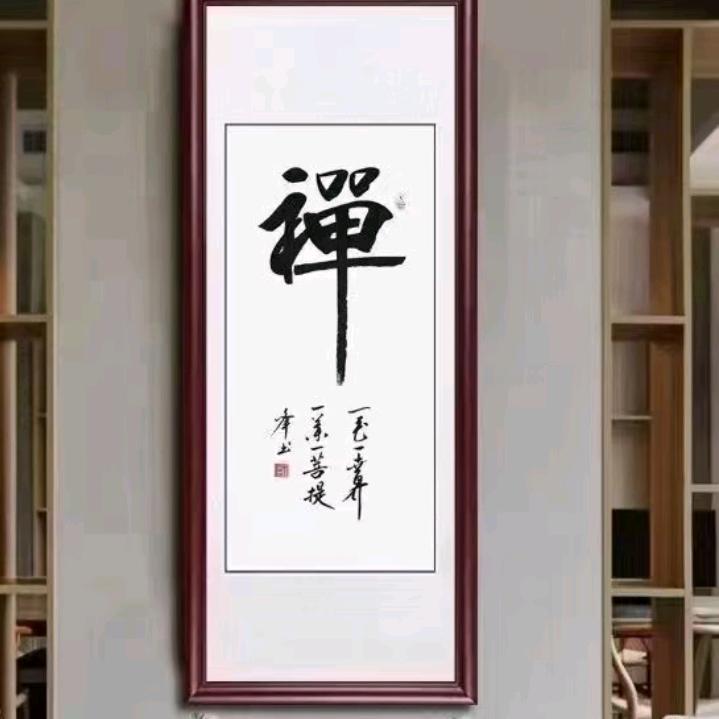 禪
一花一世界
一葉一菩提